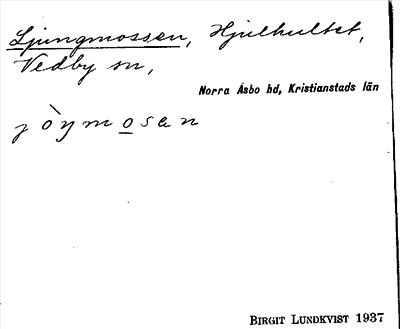 Ljungmossen, Hjulhultet,
Vedby sn,
Norra Åsbo hd, Kristianstads län
jòŋmosen
BIRGIT LUNDKVIST 1937